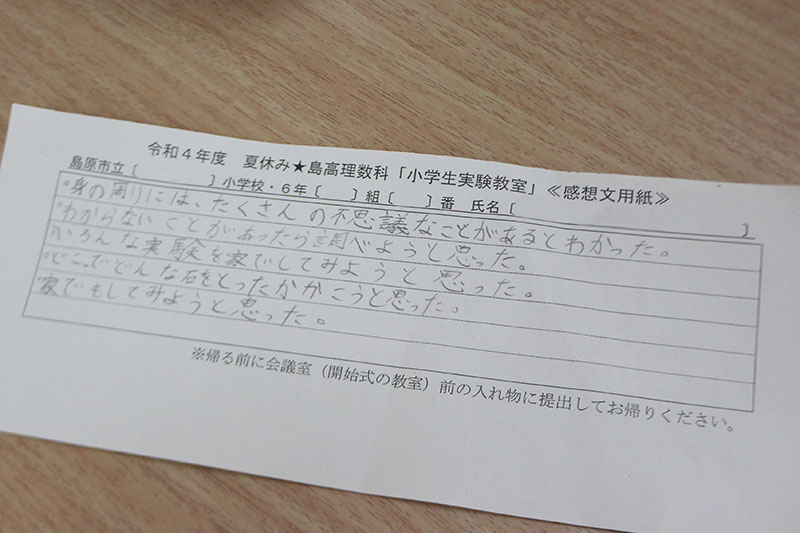 令和4年度　夏休み★島高理数科「小学生実験教室」≪感想文用紙≫
島原市立［　　　　　］小学校・6年［　　］組［　　］番　氏名［　　　　　　　　　　］
°身の周りには、たくさんの不思議なことがあるとわかった。
°わからないことがあったら調べようと思った。
°いろんな実験を家でしてみようと思った。
°どこでどんな石をとったかかこうと思った。
°家でもしてみようと思った。
※帰る前に会議室（開始式の教室）前の入れ物に提出してお帰りください。